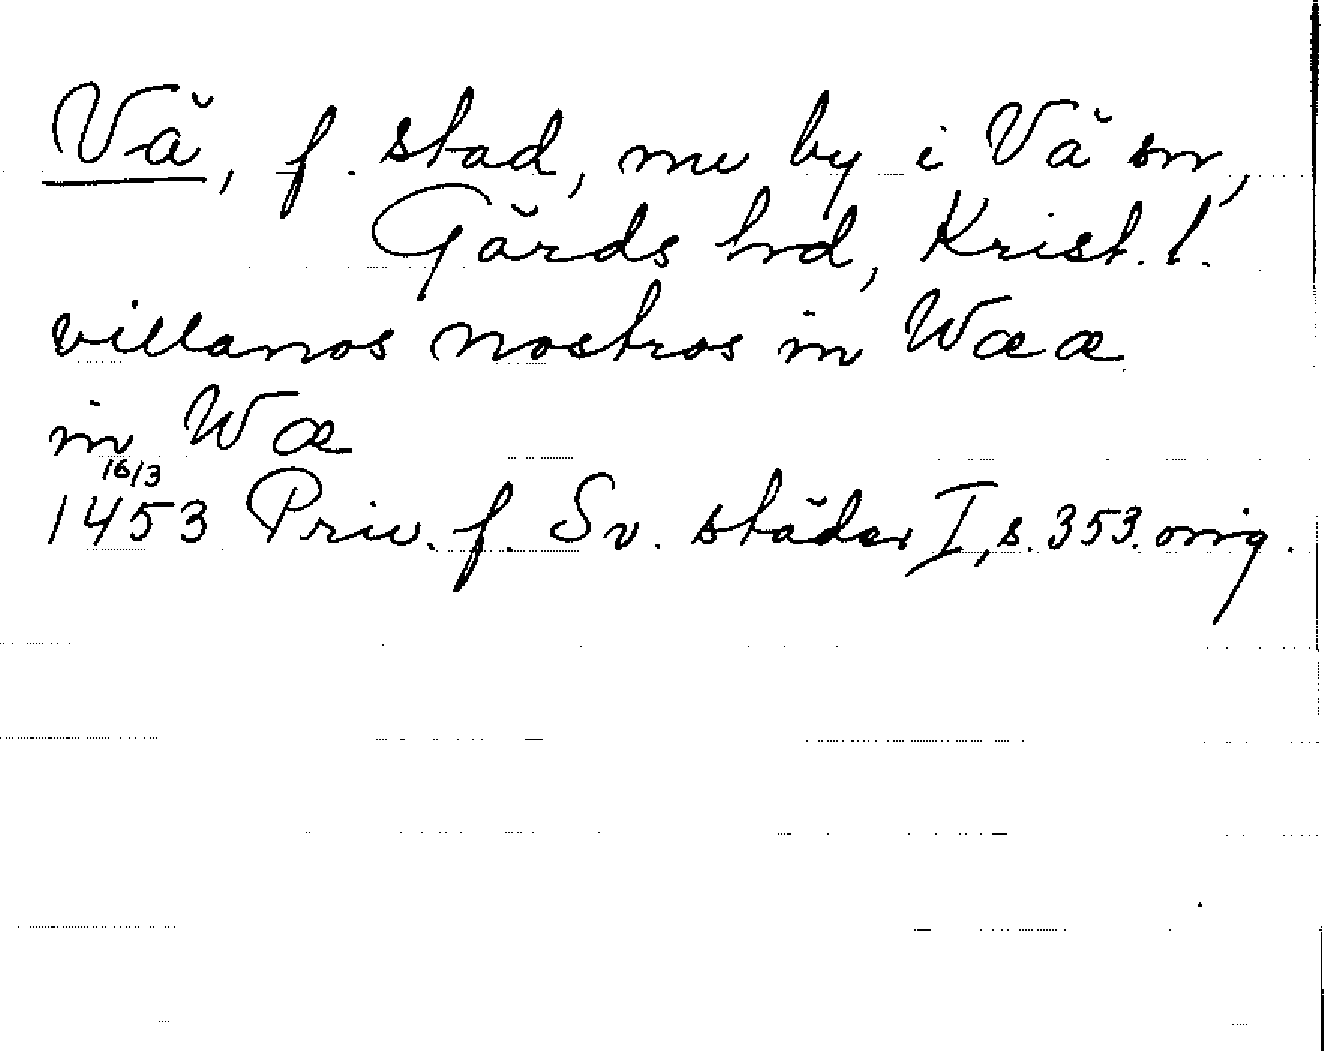 Vä, f. stad, nu by i Vä sn,
Gärds hrd, Krist. l.
villanos nostros in Wææ
in Wæ
16/3
1453 Priv. f. Sv. städer I, s. 353. orig.